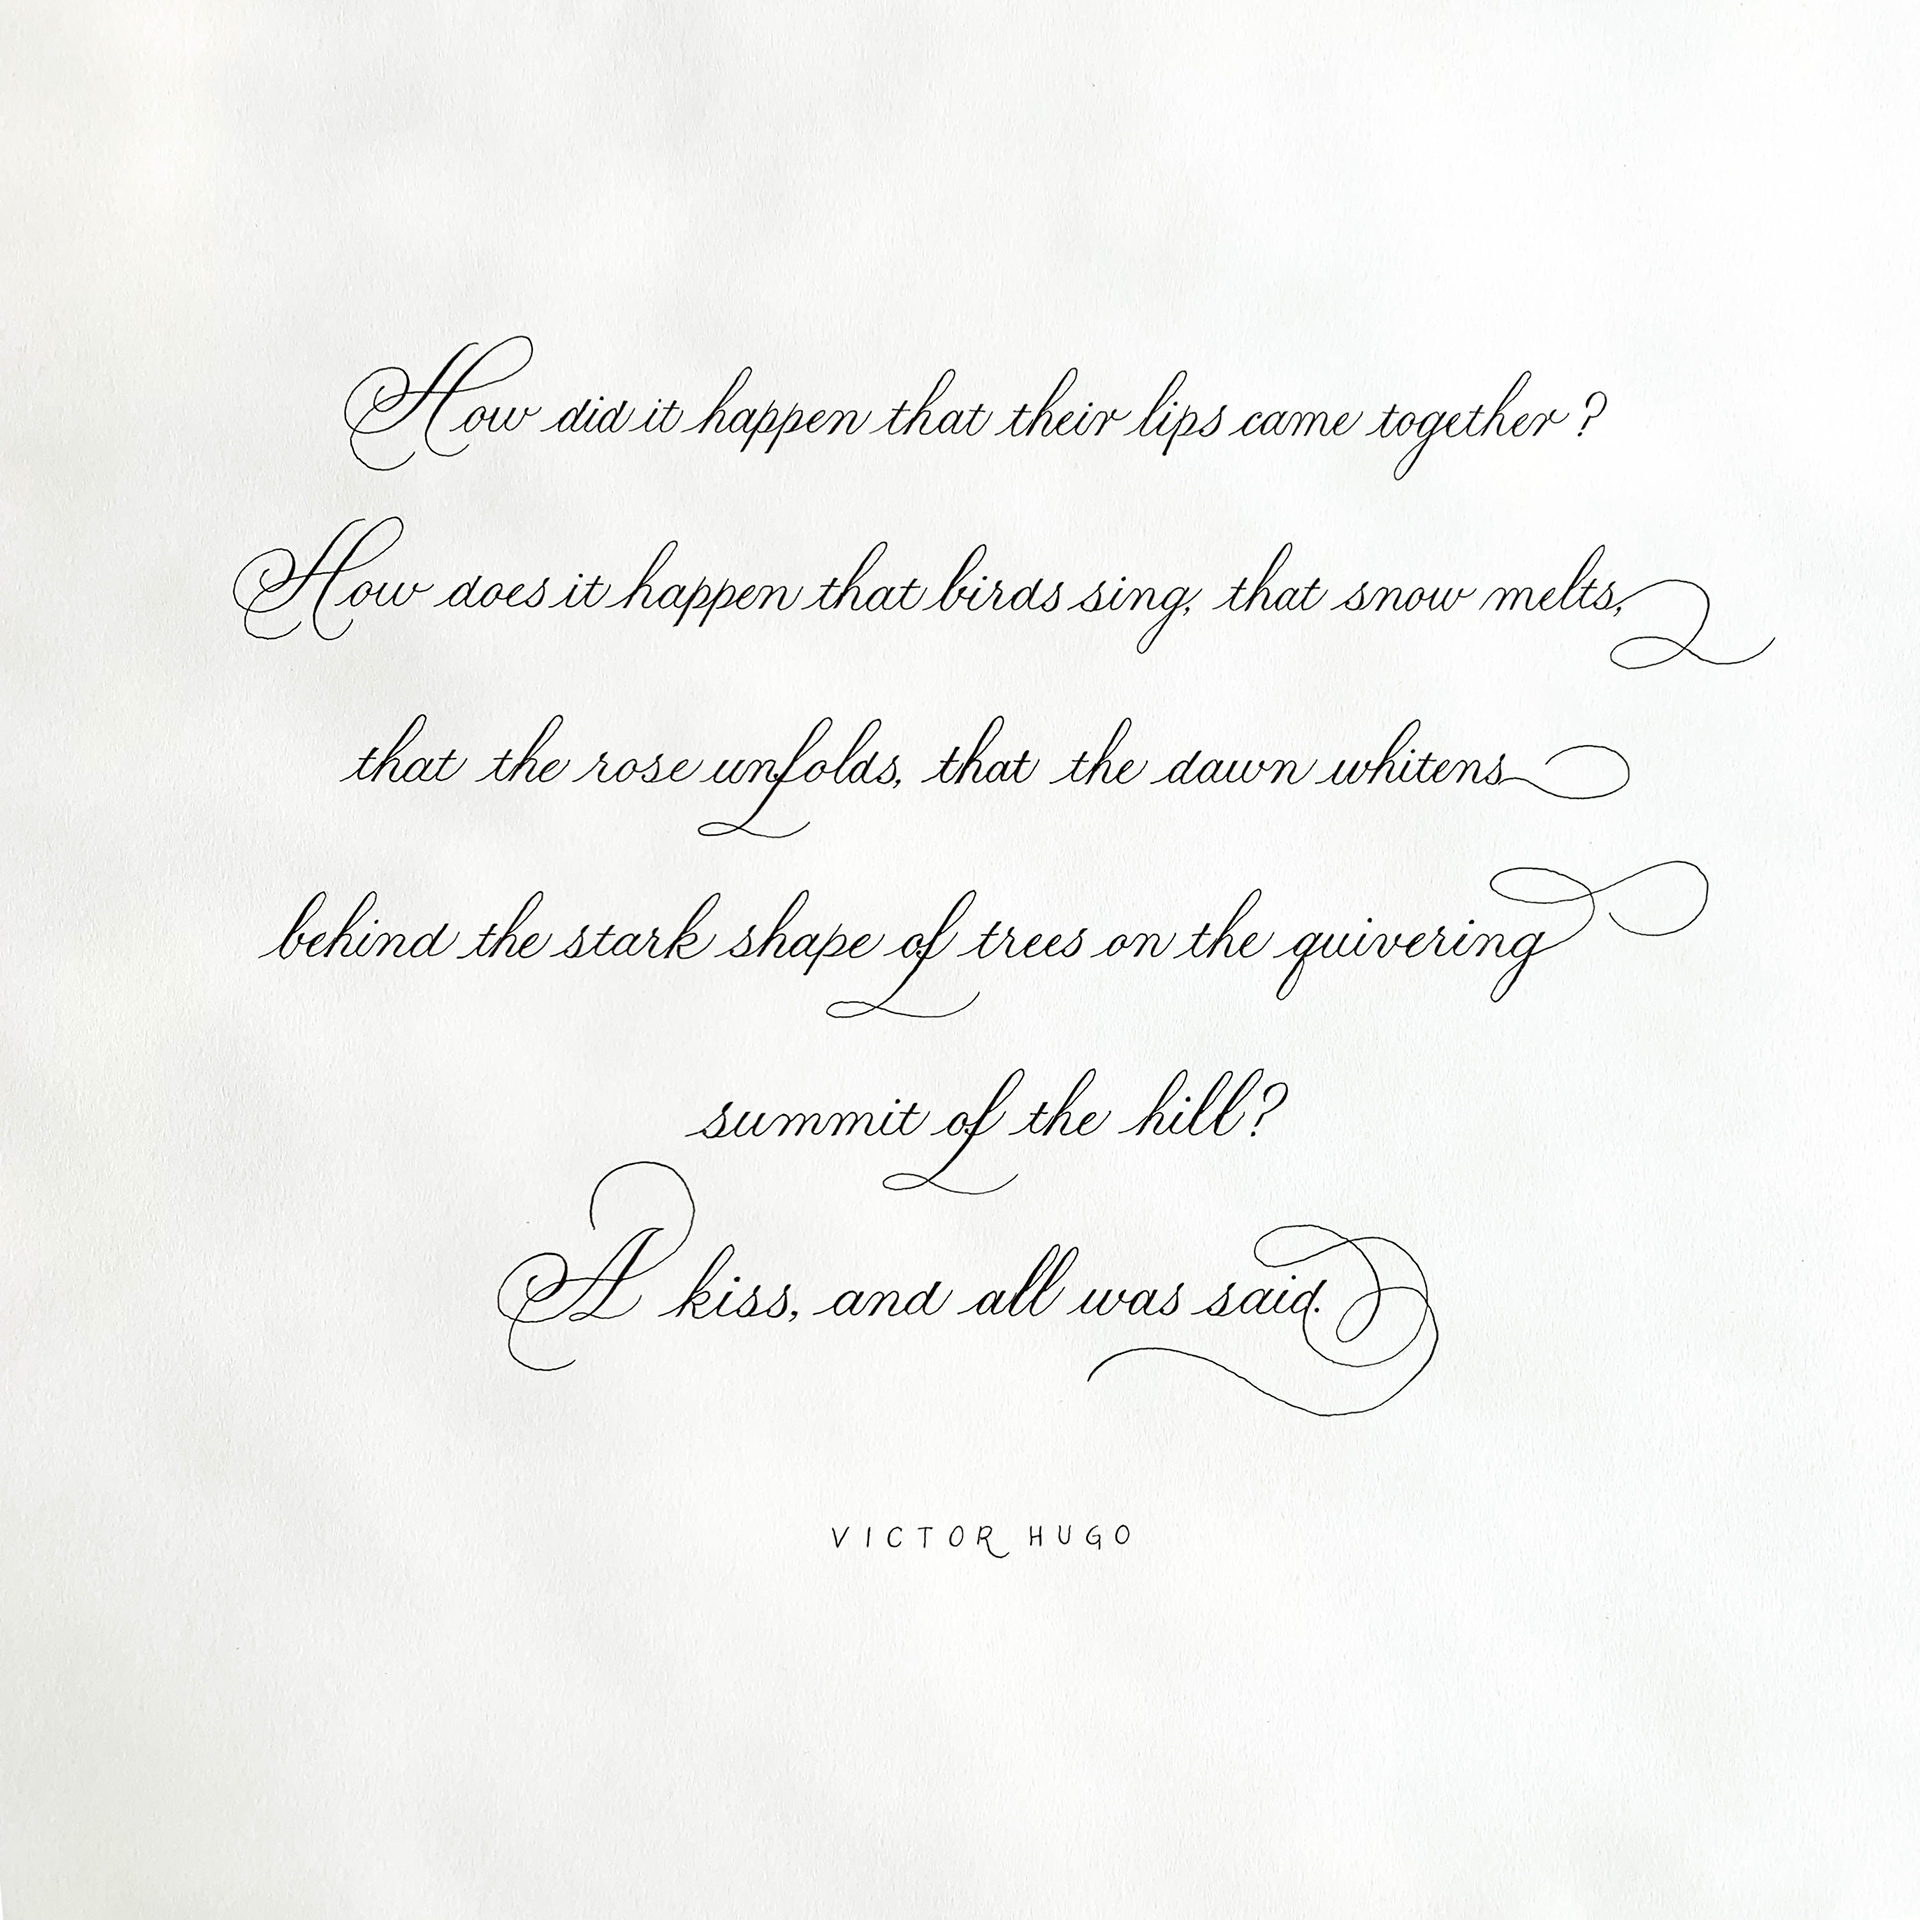 How did it happen that their lips came together?
How does it happen that birds sing, that snow melts,
that the rose unfolds, that the dawn whitens
behind the stark shape of trees on the quivering
summit of the hill?
A kiss, and all was said.
VICTOR HUGO